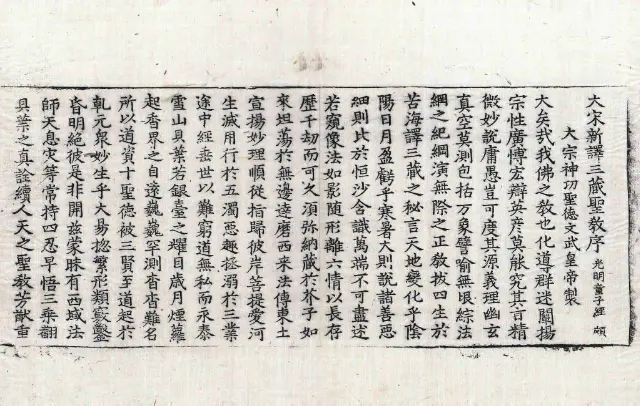 大宋新譯三藏聖教序 光明童子經 頗
大宗神功聖德文武皇帝製
大矣㢤我佛之教也化導群迷闡揚
宗性廣博宏辯英彦莫能究其旨精
微妙說庸愚豈可度其源義理幽玄
真空莫測包括万象譬喻無垠綜法
網之紀綱演無際之正教拔四生於
苦海譯三藏之秘言天地變化乎陰
陽日月盈虧乎寒暑大則說諸善惡
細則比於恒沙含識萬端不可盡述
若窺像法如影随形離六情以長存
歷千劫而可久湏弥納藏於芥子如
來坦蕩於無邊達磨西来法傳東土
宣揚妙理順從指歸彼岸菩提愛河
生滅用行於五濁悪趣拯溺於三業
途中經垂世以難窮道無私而永泰
雪山貝葉若銀臺之耀目歳月煙蘿
起香界之自遠巍巍罕測杳杳難名
所以道資十聖德被三賢至道起於
乹元衆妙生乎大易揔繁形類竅鑿
昏明絶彼是非開兹蒙昧有西域法
師天息灾等常持四忍早悟三乗翻
貝葉之真詮續人天之聖教芳猷重